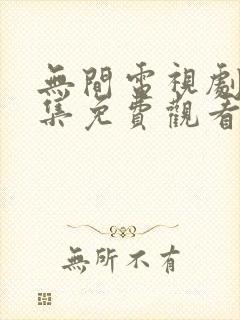 無間電視劇
集免費觀看
無所不有